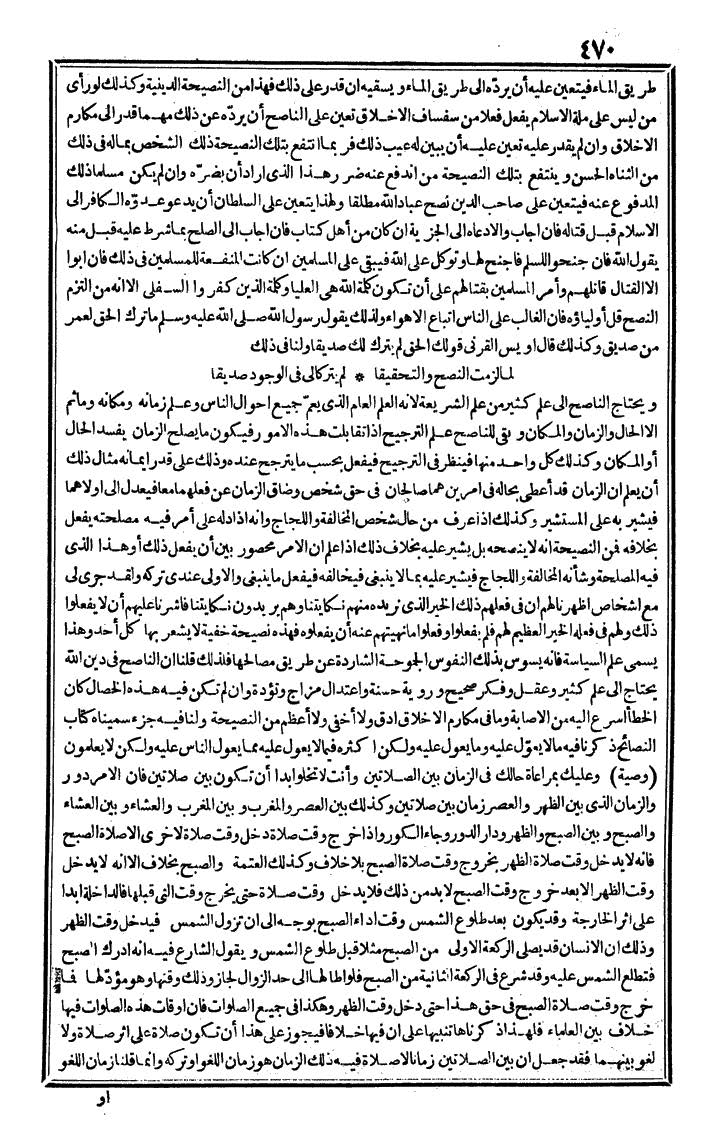 ٤٧٠
طريق الماء فيتعين عليه أن يردّه الى طريق الماء ويسقيه ان قدر على ذلك فهذا من النصيحة الدينية وكذلك لو رأى
من ليس على ملة الاسلام يفعل فعلا من سفساف الاخلاق تعين على الناصح أن يردّه عن ذلك مهما قدر الى مكارم
الاخلاق وان لم يقدر عليه تعين عليه أن يبين له عيب ذلك فربما انتفع بتلك النصيحة ذلك الشخص بماله فى ذلك
من الثناء الحسن وينتفع بتلك النصيحة من اندفع عنه ضرر هذا الذى اراد أن يضرّه وان لم يكن مسلما ذلك
المدفوع عنه فيتعين على صاحب الدين نصح عباد الله مطلقا ولهذا يتعين على السلطان أن يدعو عدوّه الكافر الى
الاسلام قبل قتاله فان اجاب والا دعاه الى الجزية ان كان من أهل كتاب فان اجاب الى الصلح بما شرط عليه قبل منه
يقول الله فان جنحوا للسلم فاجنح لها وتوكل على الله فيبقى على المسلمين ان كانت المنفعة للمسلمين فى ذلك فان ابوا
الا القتال قاتلهم وأمر المسلمين بقتالهم على أن تكون كلمة الله هى العليا وكلمة الذين كفروا السفلى الا انه من التزم
النصح قل أولياؤه فان الغالب على الناس اتباع الاهواء ولذلك يقول رسول الله صلى الله عليه وسلم ما ترك الحق لعمر
من صديق وكذلك قال اويس القرنى قولك الحق لم يترك لك صديقا ولنا فى ذلك
لما لزمت النصح والتحقيقا * لم يتركا لى فى الوجود صديقا
ويحتاج الناصح الى علم كثير من علم الشريعة لانه العلم العام الذى يعمّ جميع احوال الناس وعلم زمانه ومكانه وماثم
الا الحال والزمان والمكان وبقى للناصح علم الترجيح اذا تقابلت هذه الامور فيكون ما يصلح الزمان يفسد الحال
أو المكان وكذلك كل واحد منها فينظر فى الترجيح فيفعل بحسب ما يترجح عنده وذلك على قدر ايمانه مثال ذلك
أن يعلم ان الزمان قد أعطى بحاله فى امرين هما صالحان فى حق شخص وضاق الزمان عن فعلهما معا فيعدل الى اولاهما
فيشير به على المستشير وكذلك اذا عرف من حال شخص المخالفة واللجاج وانه اذا دله على أمر فيه مصلحته يفعل
بخلافه فن النصيحة انه لا ينصحه بل يشير عليه بخلاف ذلك اذا علم ان الامر محصور بين أن يفعل ذلك أو هذا الذى
فيه المصلحة وشأنه المخالفة واللجاج فيشير عليه بما لا ينبغى فيخالفه فيفعل ما ينبغى والاولى عندى تركه ولقد جرى لى
مع اشخاص اظهر نا لهم ان فى فعلهم ذلك الخير الذى نريده منهم نكايتنا وهم يريدون نكايتنا فاشرنا عليهم أن لا يفعلوا
ذلك ولهم فى فعله الخير العظيم لهم فلم يفعلوا وفعلوا ما نهيتهم عنه أن يفعلوه فهذه نصيحة خفية لا يشعر بها كل أحد وهذا
يسمى علم السياسة فانه يسوس بذلك النفوس الجموحة الشاردة عن طريق مصالحها فلذلك قلنا ان الناصح فى دين الله
يحتاج الى علم كثير وعقل وفكر صحيح وروية حسنة واعتدال مزاج وتؤدة وان لم تكن فيه هذه الخصال كان
الخطأ أسرع اليه من الاصابة وما فى مكارم الاخلاق ادق ولا أخفى ولا أعظم من النصيحة ولنا فيه جزء سميناه كتاب
النصائح ذكرنا فيه ما لا يعوّل عليه وما يعول عليه ولكن اكثره فيما لا يعول عليه مما يعول الناس عليه ولكن لا يعلمون
(وصية) وعليك بمراعاة حالك فى الزمان بين الصلاتين وأنت لا تخلو ابدا أن تكون بين صلاتين فان الامر دور
والزمان الذى بين الظهر والعصر زمان بين صلاتين وكذلك بين العصر والمغرب وبين المغرب والعشاء وبين العشاء
والصبح وبين الصبح والظهر ودار الدور وجاء الكور واذا خرج وقت صلاة دخل وقت صلاة لاخرى الا صلاة الصبح
فانه لا يدخل وقت صلاة الظهر بخروج وقت صلاة الصبح بلا خلاف وكذلك العتمة والصبح بخلاف الا انه لا يدخل
وقت الظهر الا بعد خروج وقت الصبح لابد من ذلك فلا يدخل وقت صلاة حتى يخرج وقت التى قبلها فالداخلة ابدا
على اثر الخارجة وقد يكون بعد طلوع الشمس وقت اداء الصبح بوجه الى ان تزول الشمس فيدخل وقت الظهر
وذلك ان الانسان قد يصلى الركعة الاولى من الصبح مثلا قبل طلوع الشمس ويقول الشارع فيه انه ادرك الصبح
فتطلع الشمس عليه وقد شرع فى الركعة الثانية من الصبح فلو اطالها الى حد الزوال لجاز وذلك وقتها وهو مؤدّ لها فما
خرج وقت صلاة الصبح فى حق هذا حتى دخل وقت الظهر وهكذا فى جميع الصلوات فان اوقات هذه الصلوات فيها
خلاف بين العلماء فلهذا ذكرناها تنبيها على ان فيها خلافا فيجوز على هذا أن تكون صلاة على اثر صلاة ولا
لغو بينهما فقد جعل ان بين الصلاتين زمانا لا صلاة فيه ذلك الزمان هو زمان اللغو او تركه وانما قلنا زمان اللغو
او